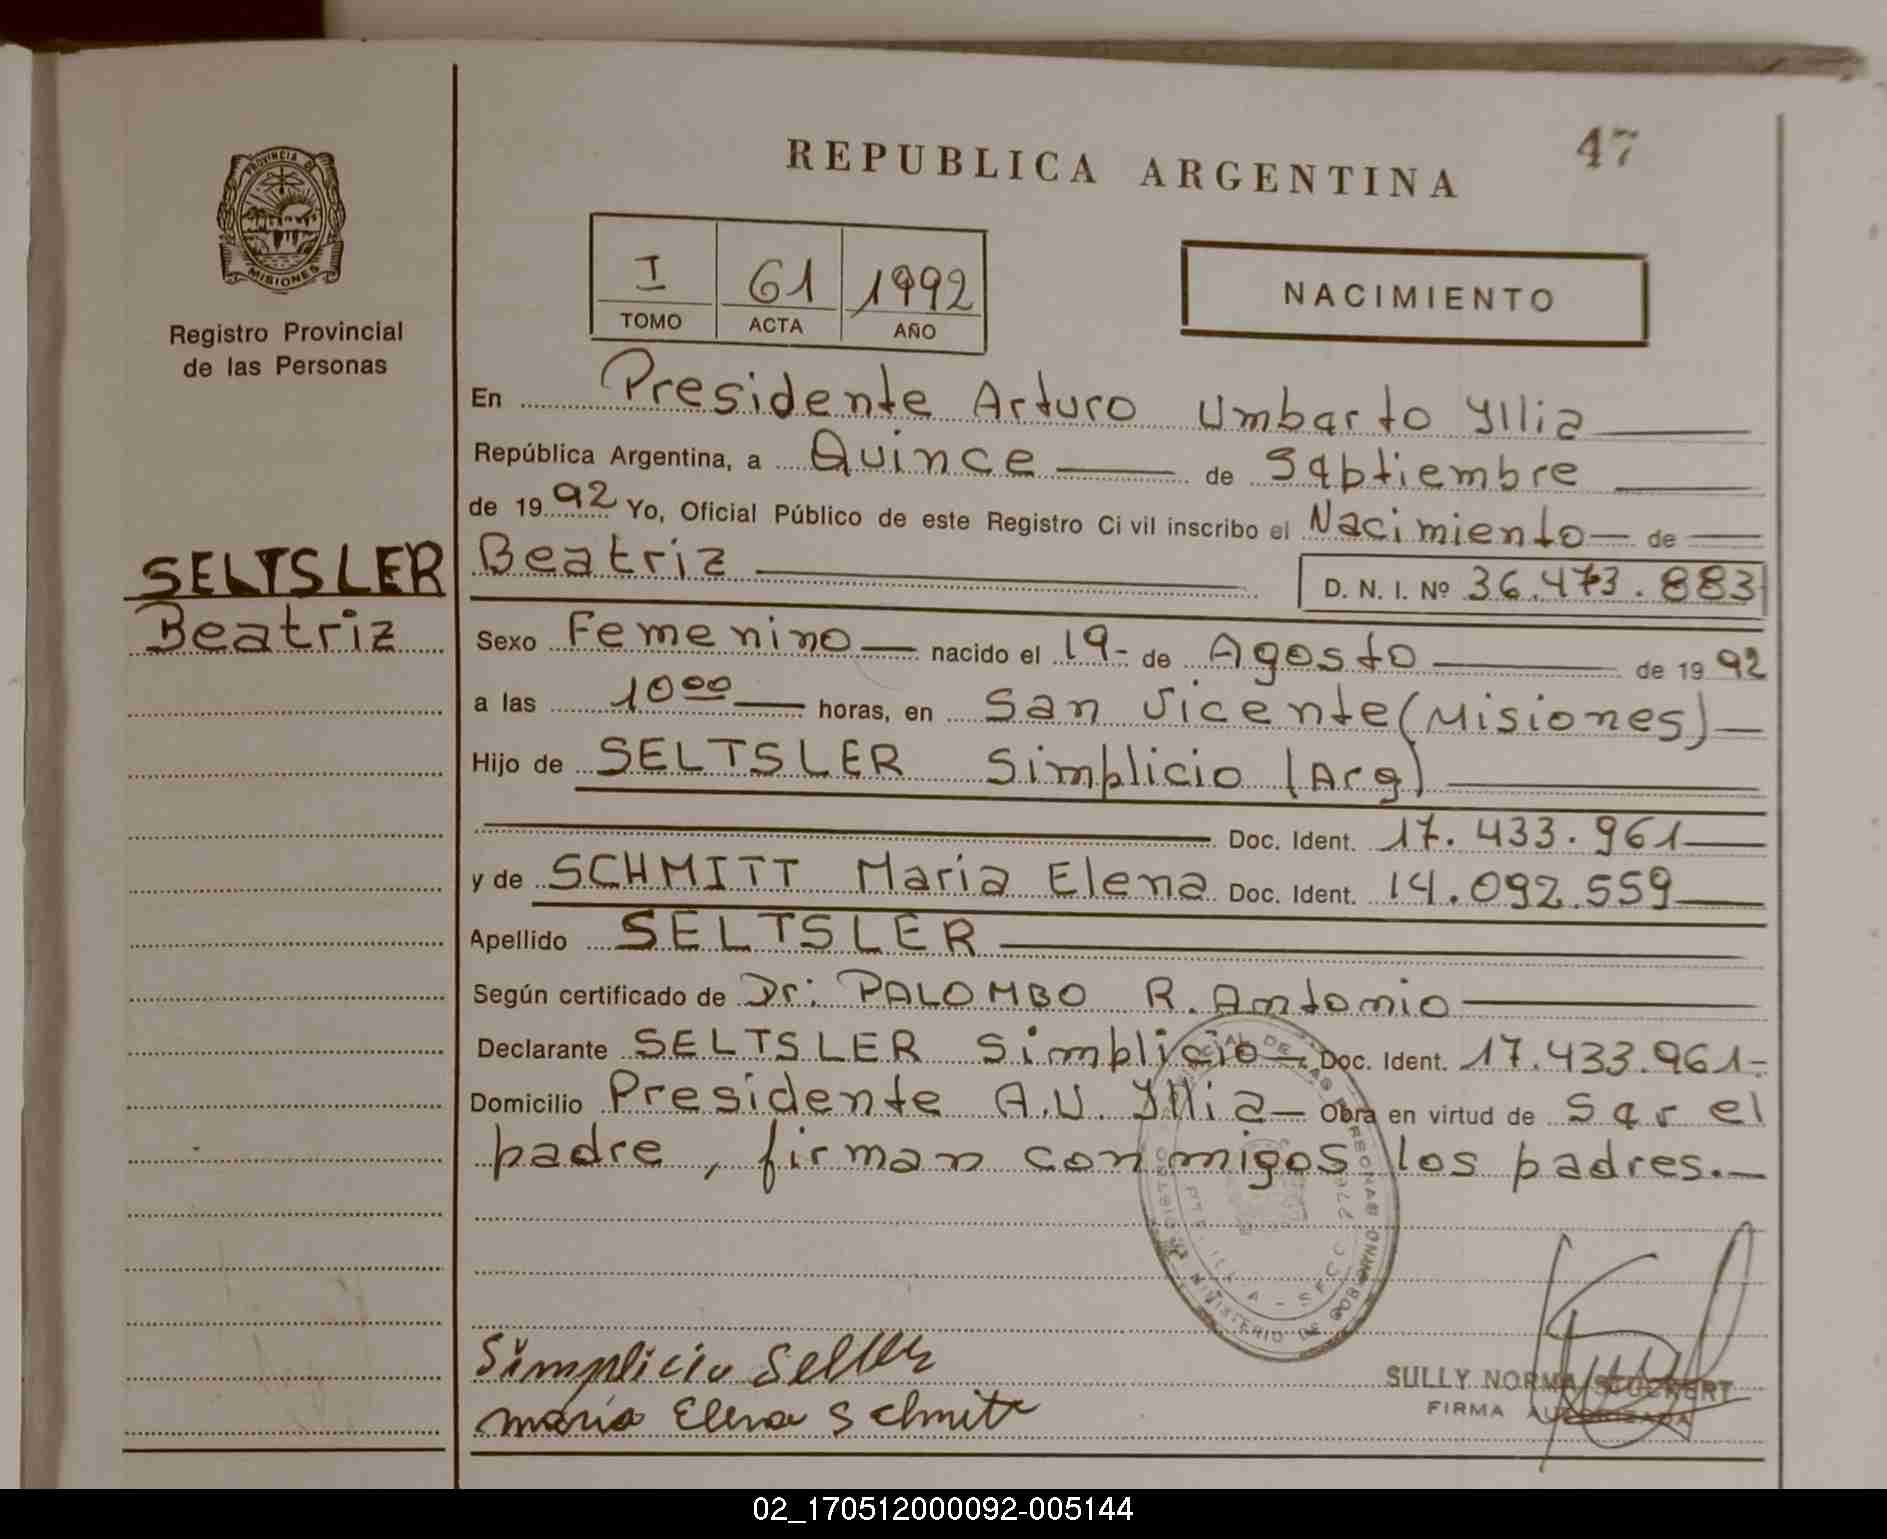 47
REPUBLICA ARGENTINA
PROVINCIA DE MISIONES
Registro Provincial
de las Personas
I 61 1992
TOMO ACTA AÑO
NACIMIENTO
En Presidente Arturo Umbarto Yllia
República Argentina, a Quince de Saptiembre
de 1992 Yo, Oficial Público de este Registro Civil inscribo el Nacimiento de
SELTSLER
Beatriz
Beatriz D. N. I. Nº 36.473.883
Sexo Femenino nacido el 19- de Agosto de 1992
a las 10⁰⁰ horas, en San Vicente (Misiones)
Hijo de SELTSLER Simplicio (Arg)
Doc. Ident. 17.433.961
y de SCHMITT Maria Elena Doc. Ident. 14.092.559
Apellido SELTSLER
Según certificado de Dr: PALOMBO R. Antonio
Declarante SELTSLER Simplicio Doc. Ident. 17.433.961-
Domicilio Presidente A.U. Yllia Obra en virtud de sar el
padre, firman conmigos los padres.
MINISTERIO DE GOBIERNO
Simplicio Seltler
maria Elena Schmitt
SULLY NORMA STUCKERT
FIRMA AUTORIZADA
02_170512000092-005144